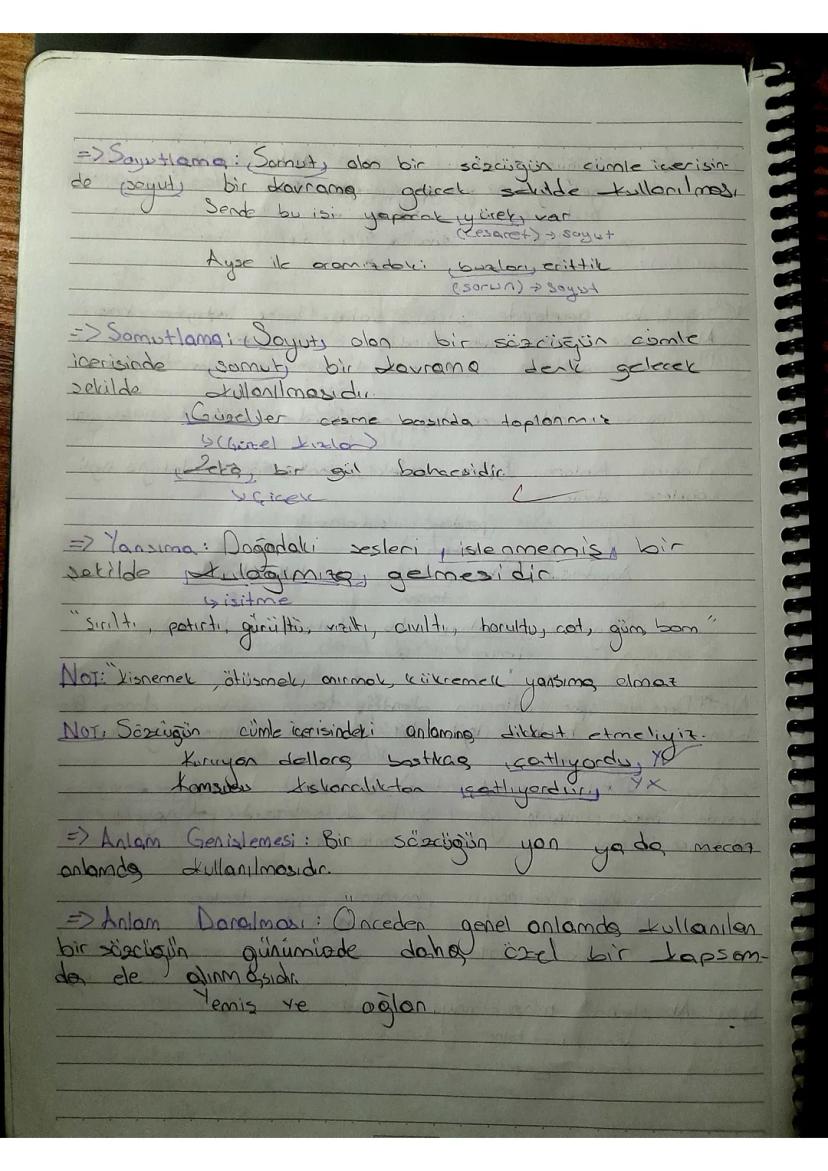 => Soyutlama: Somut, olan bir sözcüğün cümle içerisin-
de soyut, bir kavrama gelicek şekilde kullanılması
Sende bu işi yapacak yürek, var
(cesaret) → soyut
Ayşe ile aramızdaki buzları, erittik
(sorun) → soyut
=> Somutlama: Soyut, olan bir sözcüğün cümle
içerisinde somut, bir kavrama denk gelecek
şekilde kullanılmasıdır.
Güzeller çeşme başında toplanmış
↳ (Güzel kızlar)
Zerâ, bir gül bahçesidir
↳ Çiçek
=> Yansıma: Doğadaki sesleri, işlenmemiş, bir
şekilde kulağımıza, gelmesidir.
↳ işitme
"Şırıltı, patırtı, gürültü, vızıltı, cıvıltı, horultu, çat, güm, bam"
NOT: "kişnemek, ötüşmek, anırmak, kükremek" yansıma olmaz
NOT: Sözcüğün cümle içerisindeki anlamına dikkat etmeliyiz.
Kuruyan dallara bastıkça çatlıyordu, Y✓
Komşudu kıskançlıktan çatlıyordur. Y X
=> Anlam Genişlemesi: Bir sözcüğün yan ya da mecaz
anlamda kullanılmasıdır.
=> Anlam Daralması: Önceden genel anlamda kullanılan
bir sözcüğün günümüzde daha özel bir kapsam-
da ele alınmasıdır.
Yemiş ve oğlan